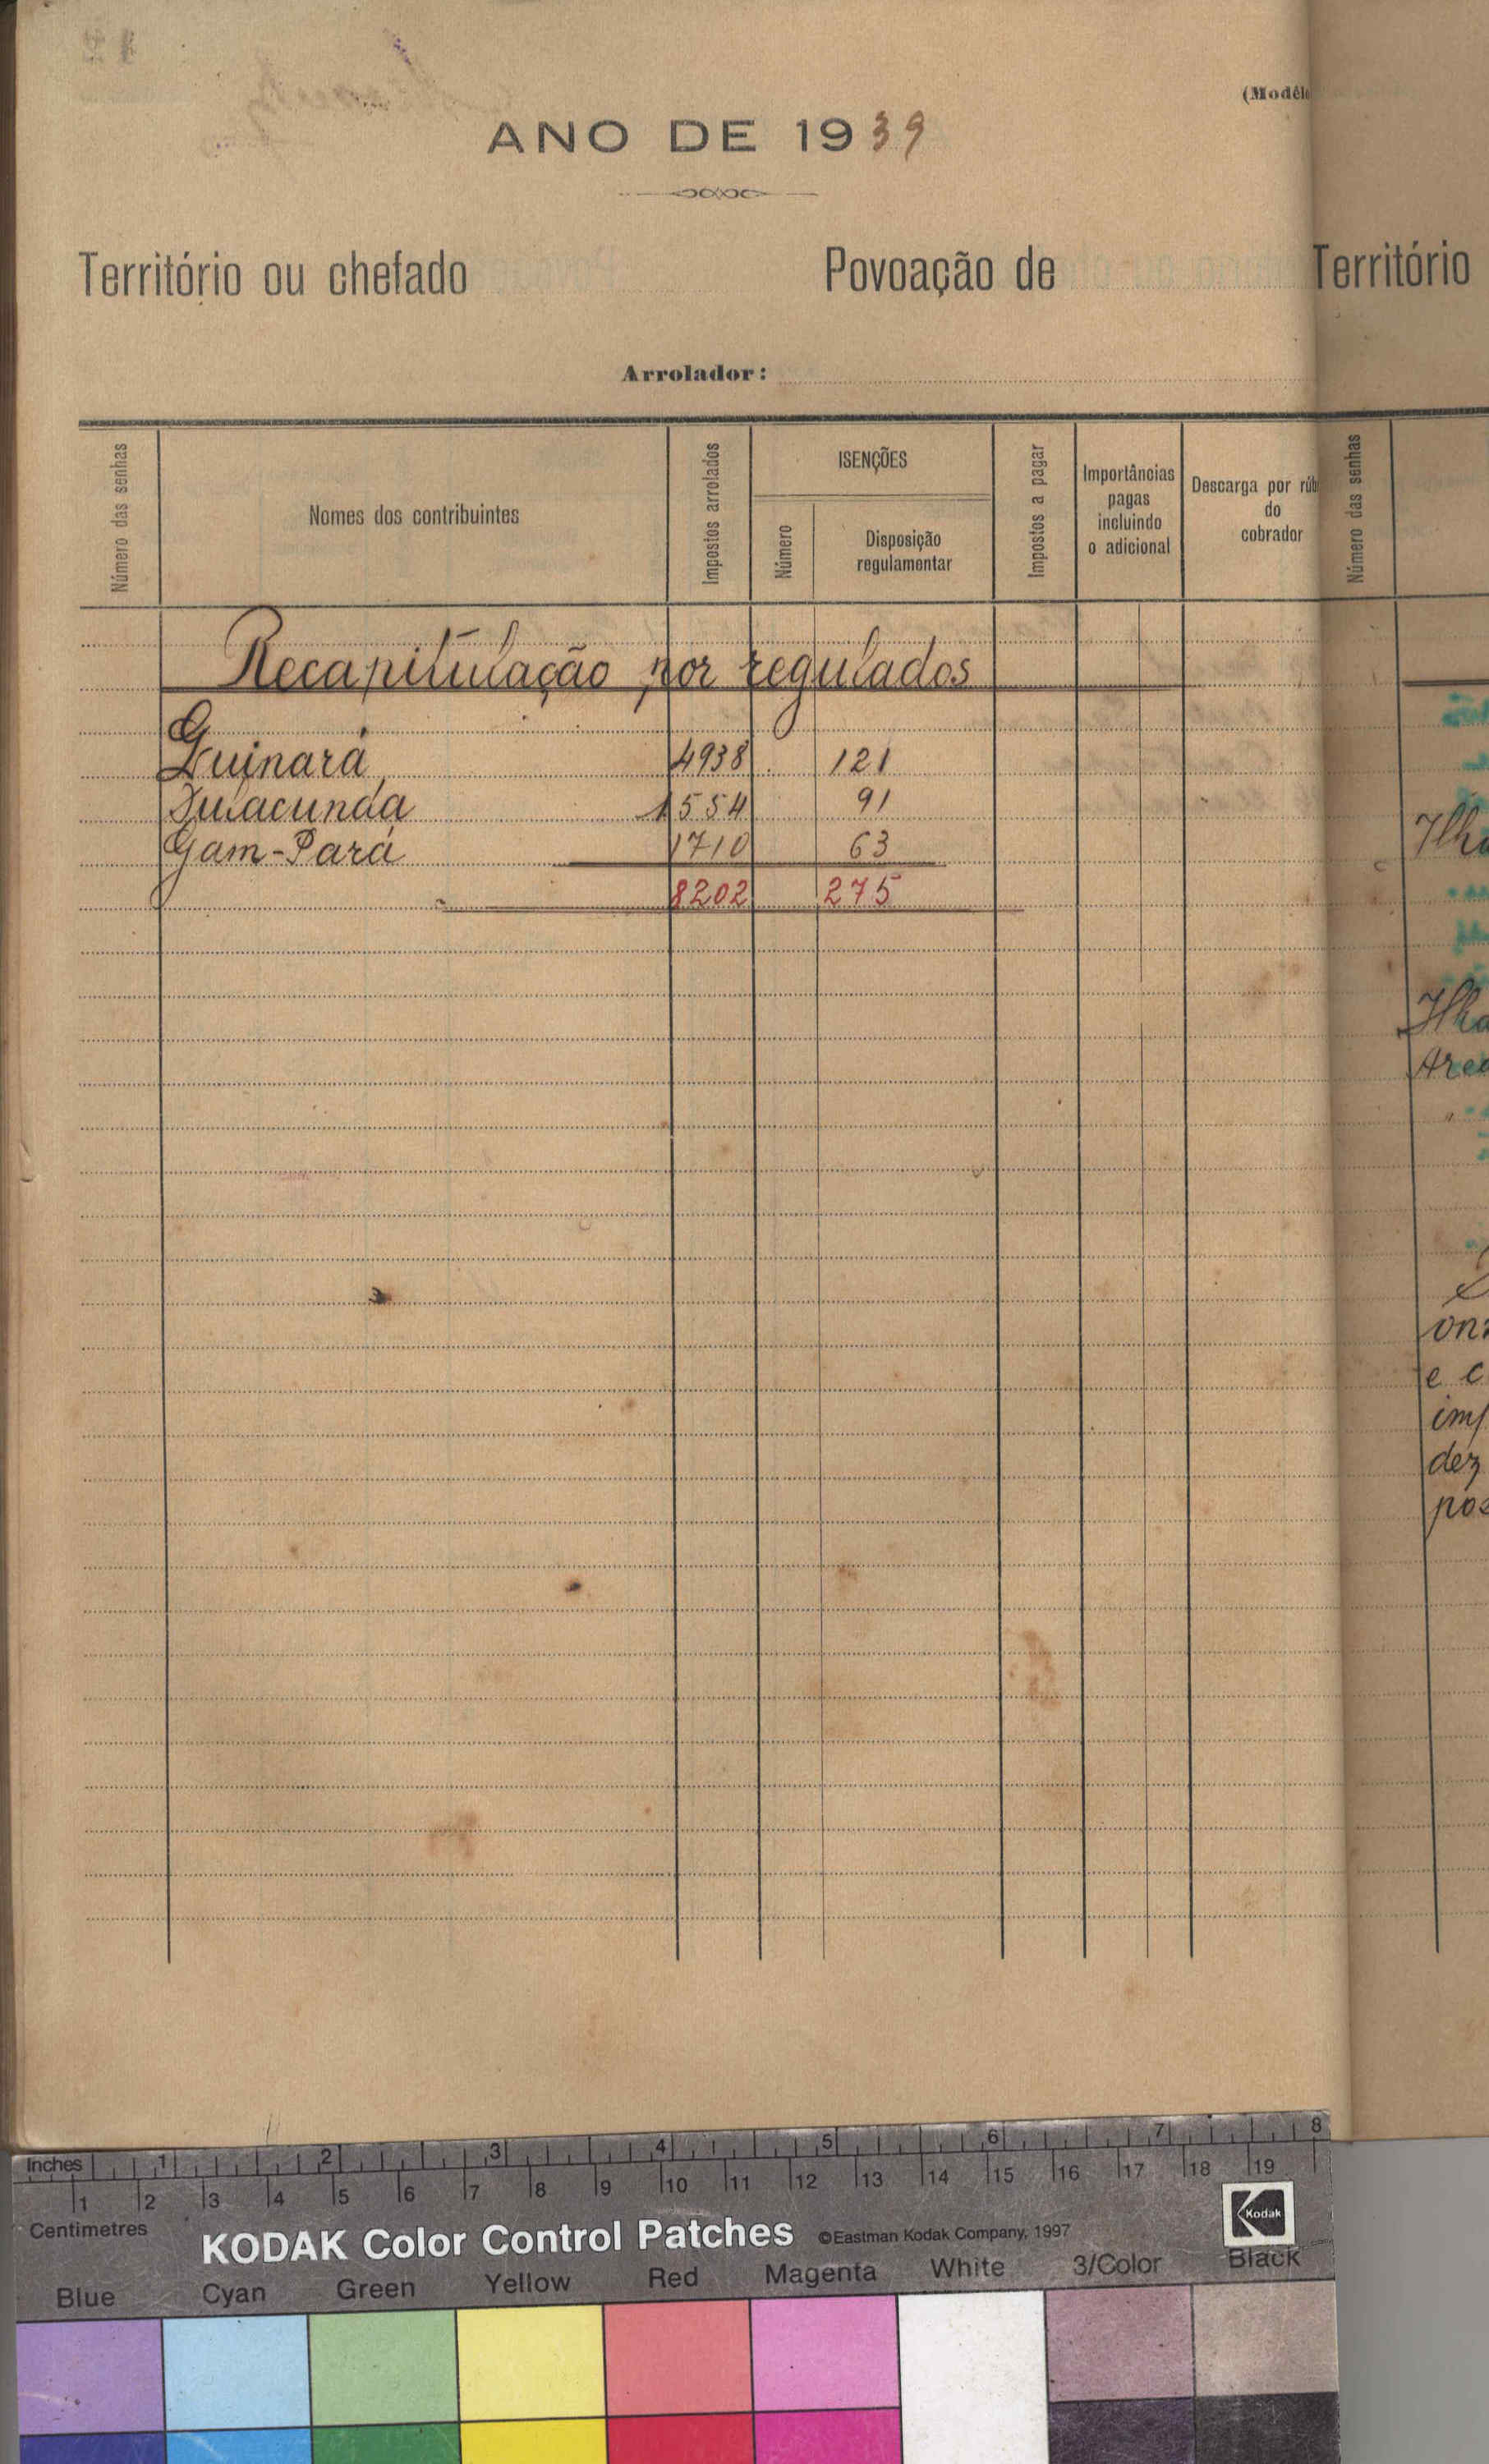 (Modêl
ANO DE 1939
Território ou chefado
Povoação de
Território
Arrolador:
Número das senhas
Nomes dos contribuintes
Impostos arrolados
ISENÇÕES
Número
Disposição
regulamentar
Impostos a pagar
Importâncias
pagas
incluindo
o adicional
Descarga por rúb
do
cobrador
Número das senhas
Recapitulação por regulados
Guinará 4938 121
Fulacunda 1554 91
Gam-Pará 1710 63
8202 275
Ilha
Ilha
Area
on
e c
imp
dez
pos
Inches 1 2 3 4 5 6 7 8
1 2 3 4 5 6 7 8 9 10 11 12 13 14 15 16 17 18 19
Centimetres
KODAK Color Control Patches ©Eastman Kodak Company, 1997 Kodak
Blue Cyan Green Yellow Red Magenta White 3/Color Black